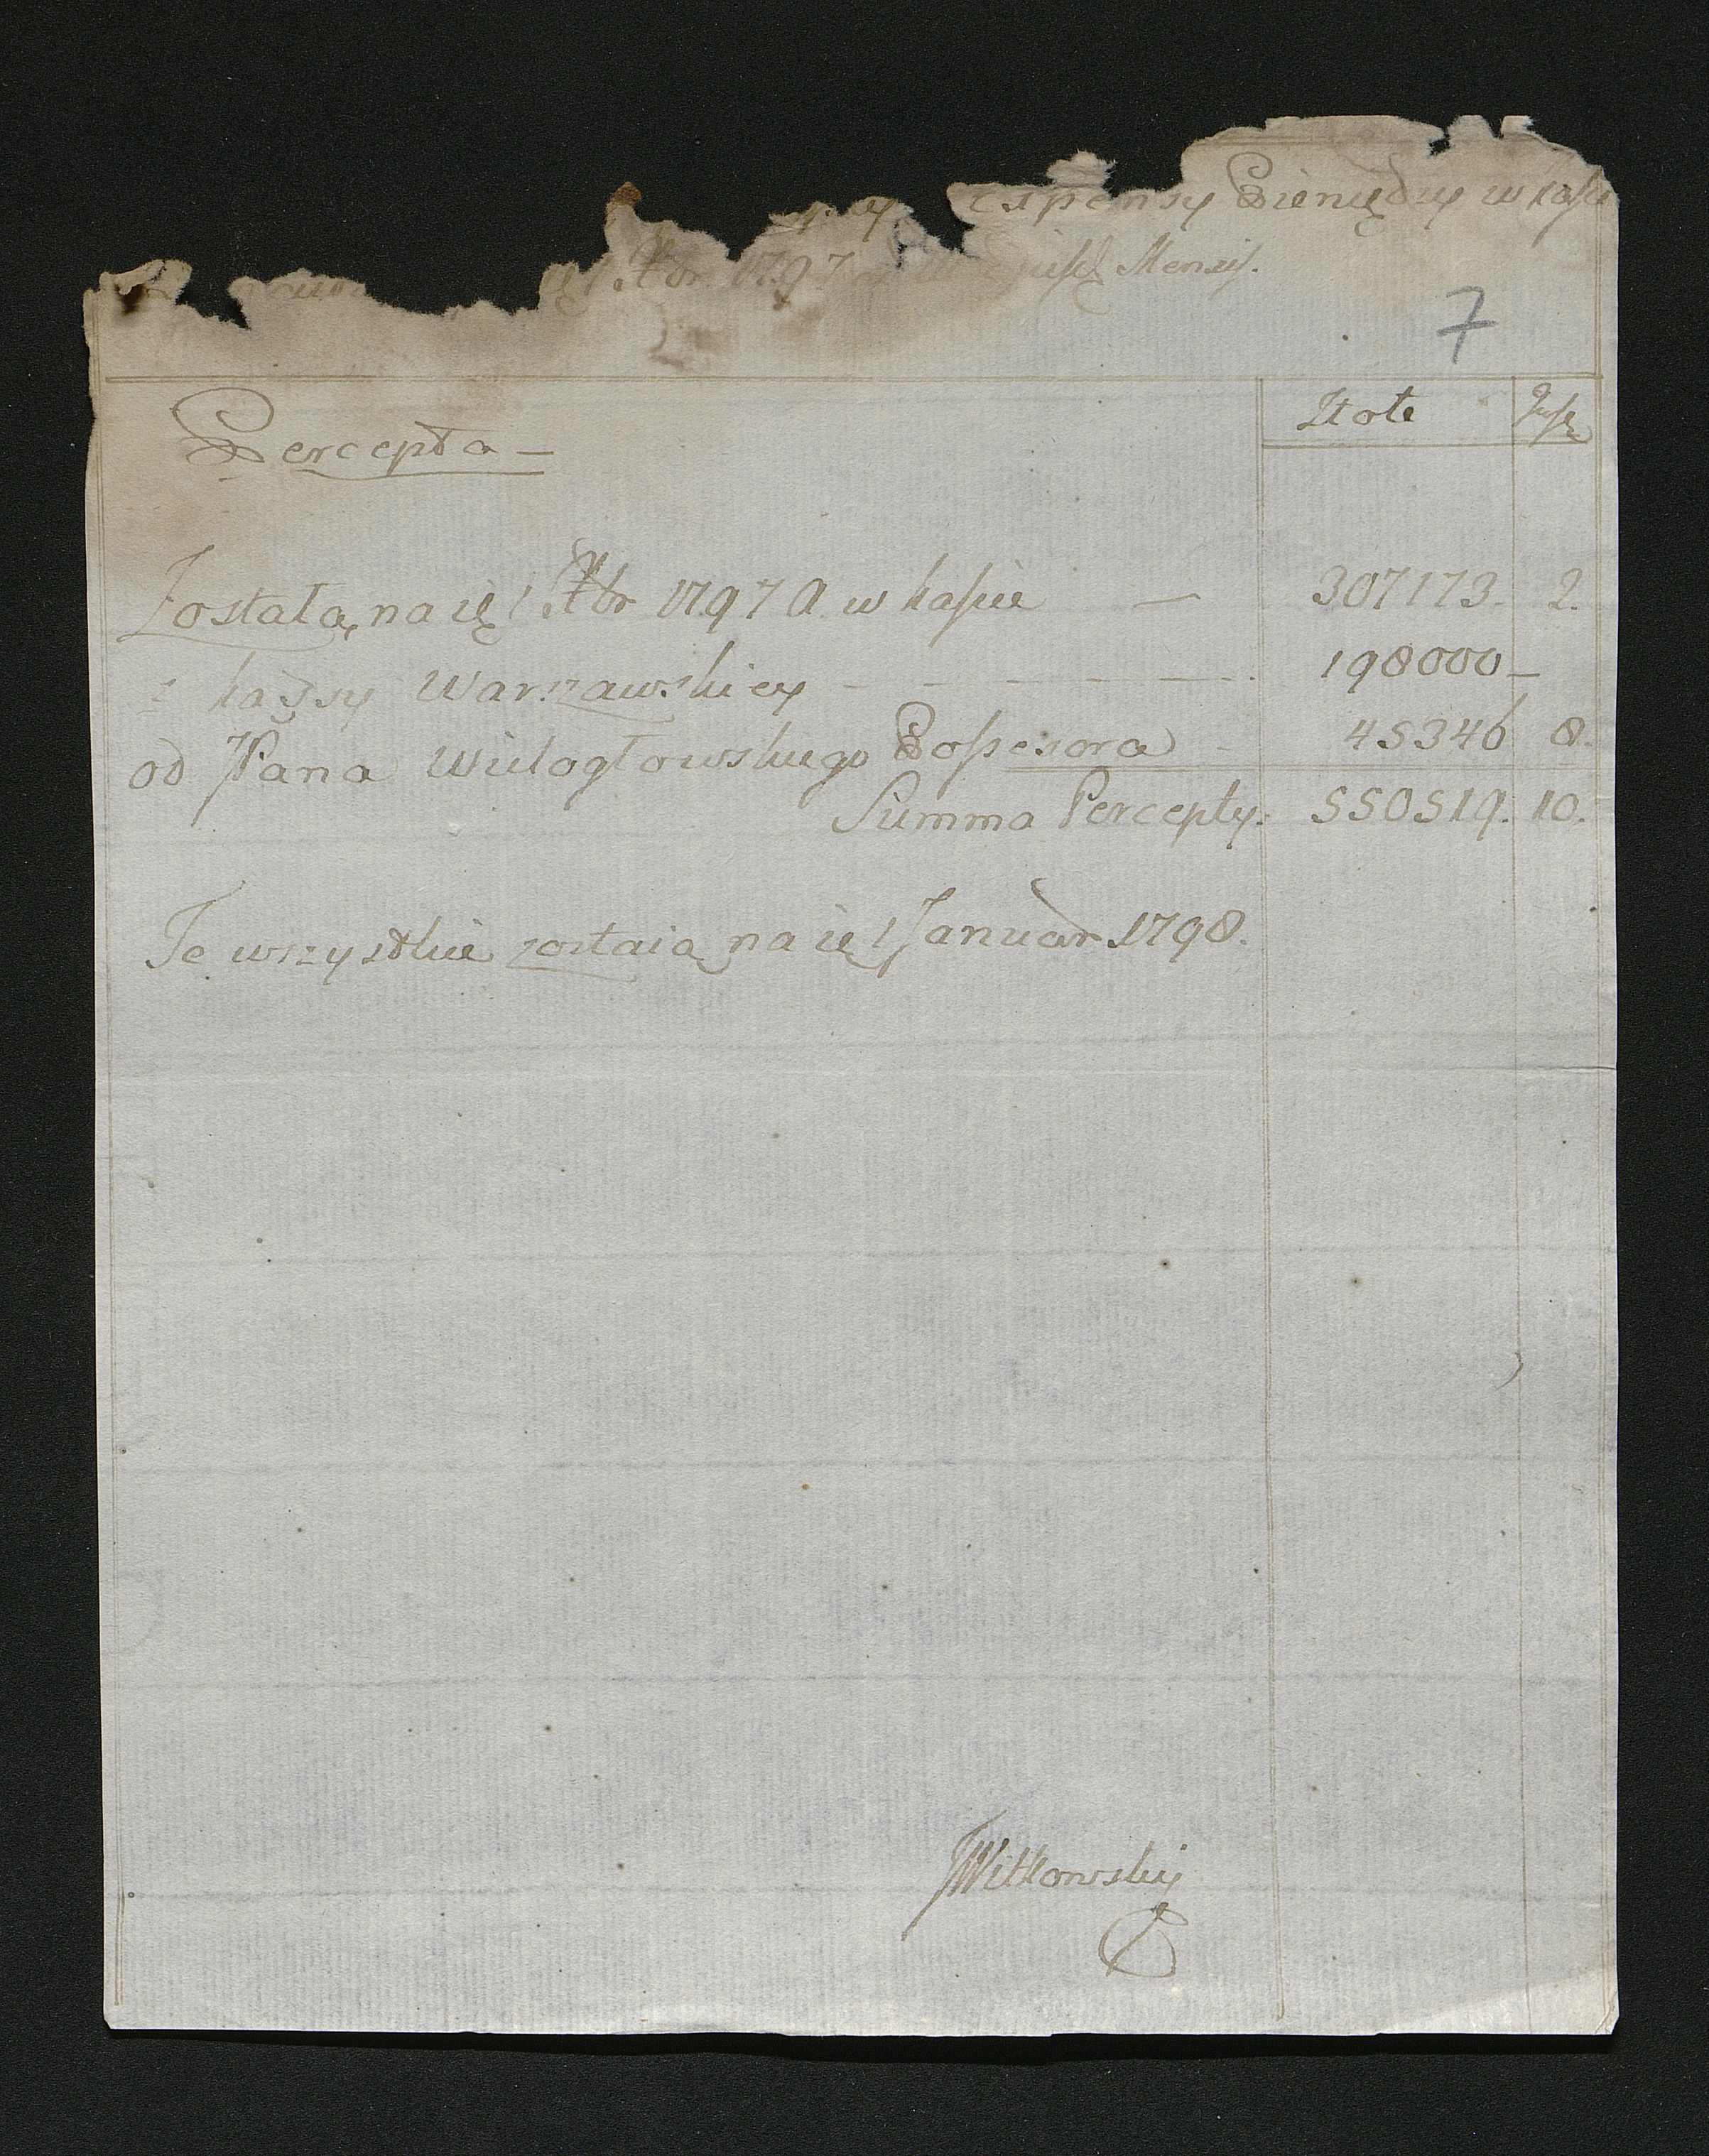 Expensy Pieniędzy w kassie
1 Xbr 1797 Mensis.
7
Złote
Percepta —
Zostało na ię 1 Xbr 1797 A w kaſsie — 307173. 2.
z kaſsy Warszawskiey — — — — — 198000 —
od JPana Wielogłowskiego Poſsesora 45346 8.
Summa Percepty. 550519. 10.
Te wszystkie zostaią na ię 1 Januar 1798.
JWitkowskij